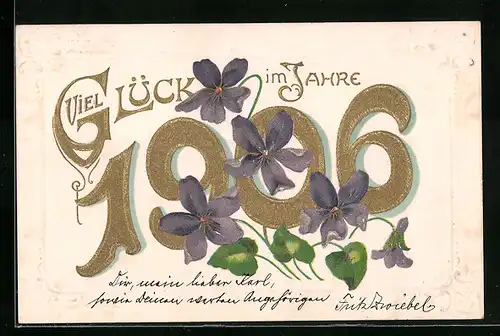 Viel Glück im Jahre
1906
Dir, mein lieber Karl,
sowie deinen werten Angehörigen
Fritz Zwiebel.